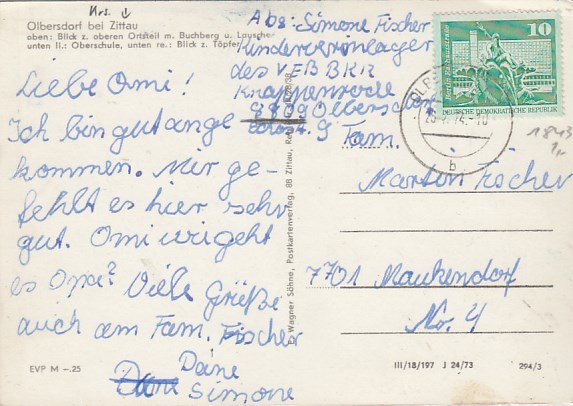 Krs. ↓
Olbersdorf bei Zittau
oben: Blick z. oberen Ortsteil m. Buchberg u. Lauscher
unten li.: Oberschule, unten re.: Blick z. Töpfer
Abs: Simone Fischer
Kinderferienlager
des VEB BKR
Knappenrode
8809 Olbersdorf
9
Liebe Omi!
Ich bin gut ange
kommen. Mir ge-
fehlt es hier sehr
gut. Omi wi geht
es Opa? Viele Grüße
auch am Fam. Fischer
Deine
Simone
EVP M –.25
Wagner Söhne, Postkartenverlag, 88 Zittau,
10
DEUTSCHE DEMOKRATISCHE REPUBLIK
b
1843
Fam.
Martin Fischer
7701 Maukendorf
Nr. 4
III/18/197 J 24/73
294/3